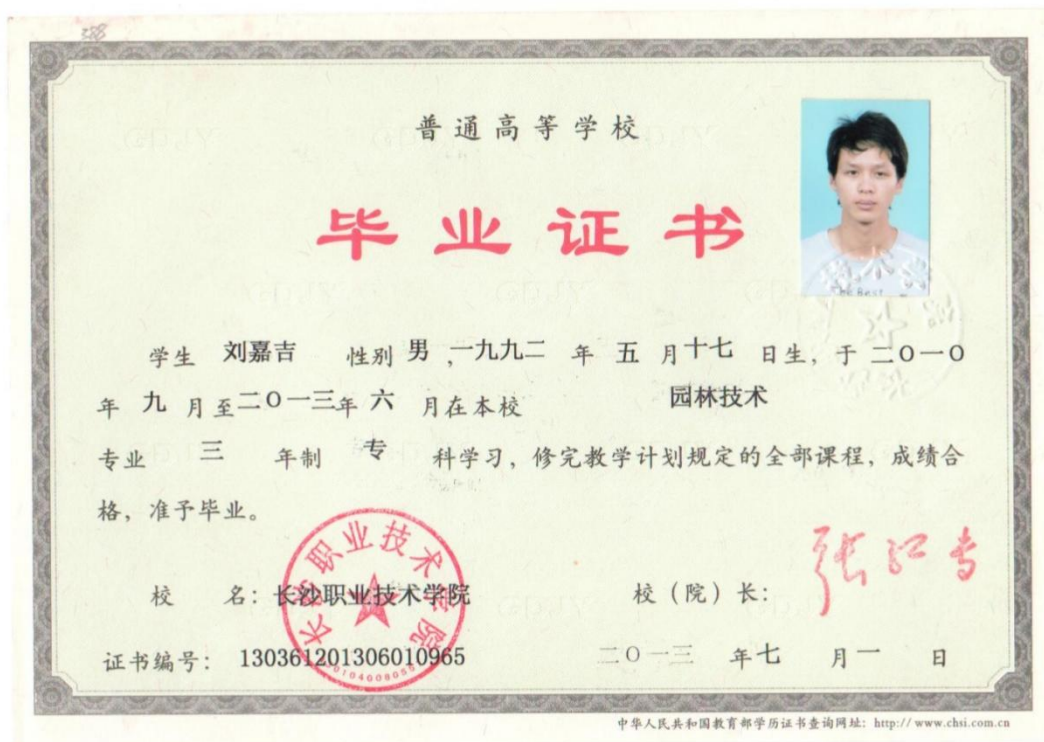 388
普通高等学校
毕业证书
学生 刘嘉吉 性别 男 ,一九九二 年 五 月十七 日生, 于 二〇一〇
年 九 月至二〇一三年 六 月在本校 园林技术
专业 三 年制 专 科学习, 修完教学计划规定的全部课程, 成绩合
格, 准予毕业。
校 名: 长沙职业技术学院 校(院)长:
证书编号: 130361201306010965 二〇一三 年七 月一 日
长沙职业技术学院
中华人民共和国教育部学历证书查询网址: http://www.chsi.com.cn